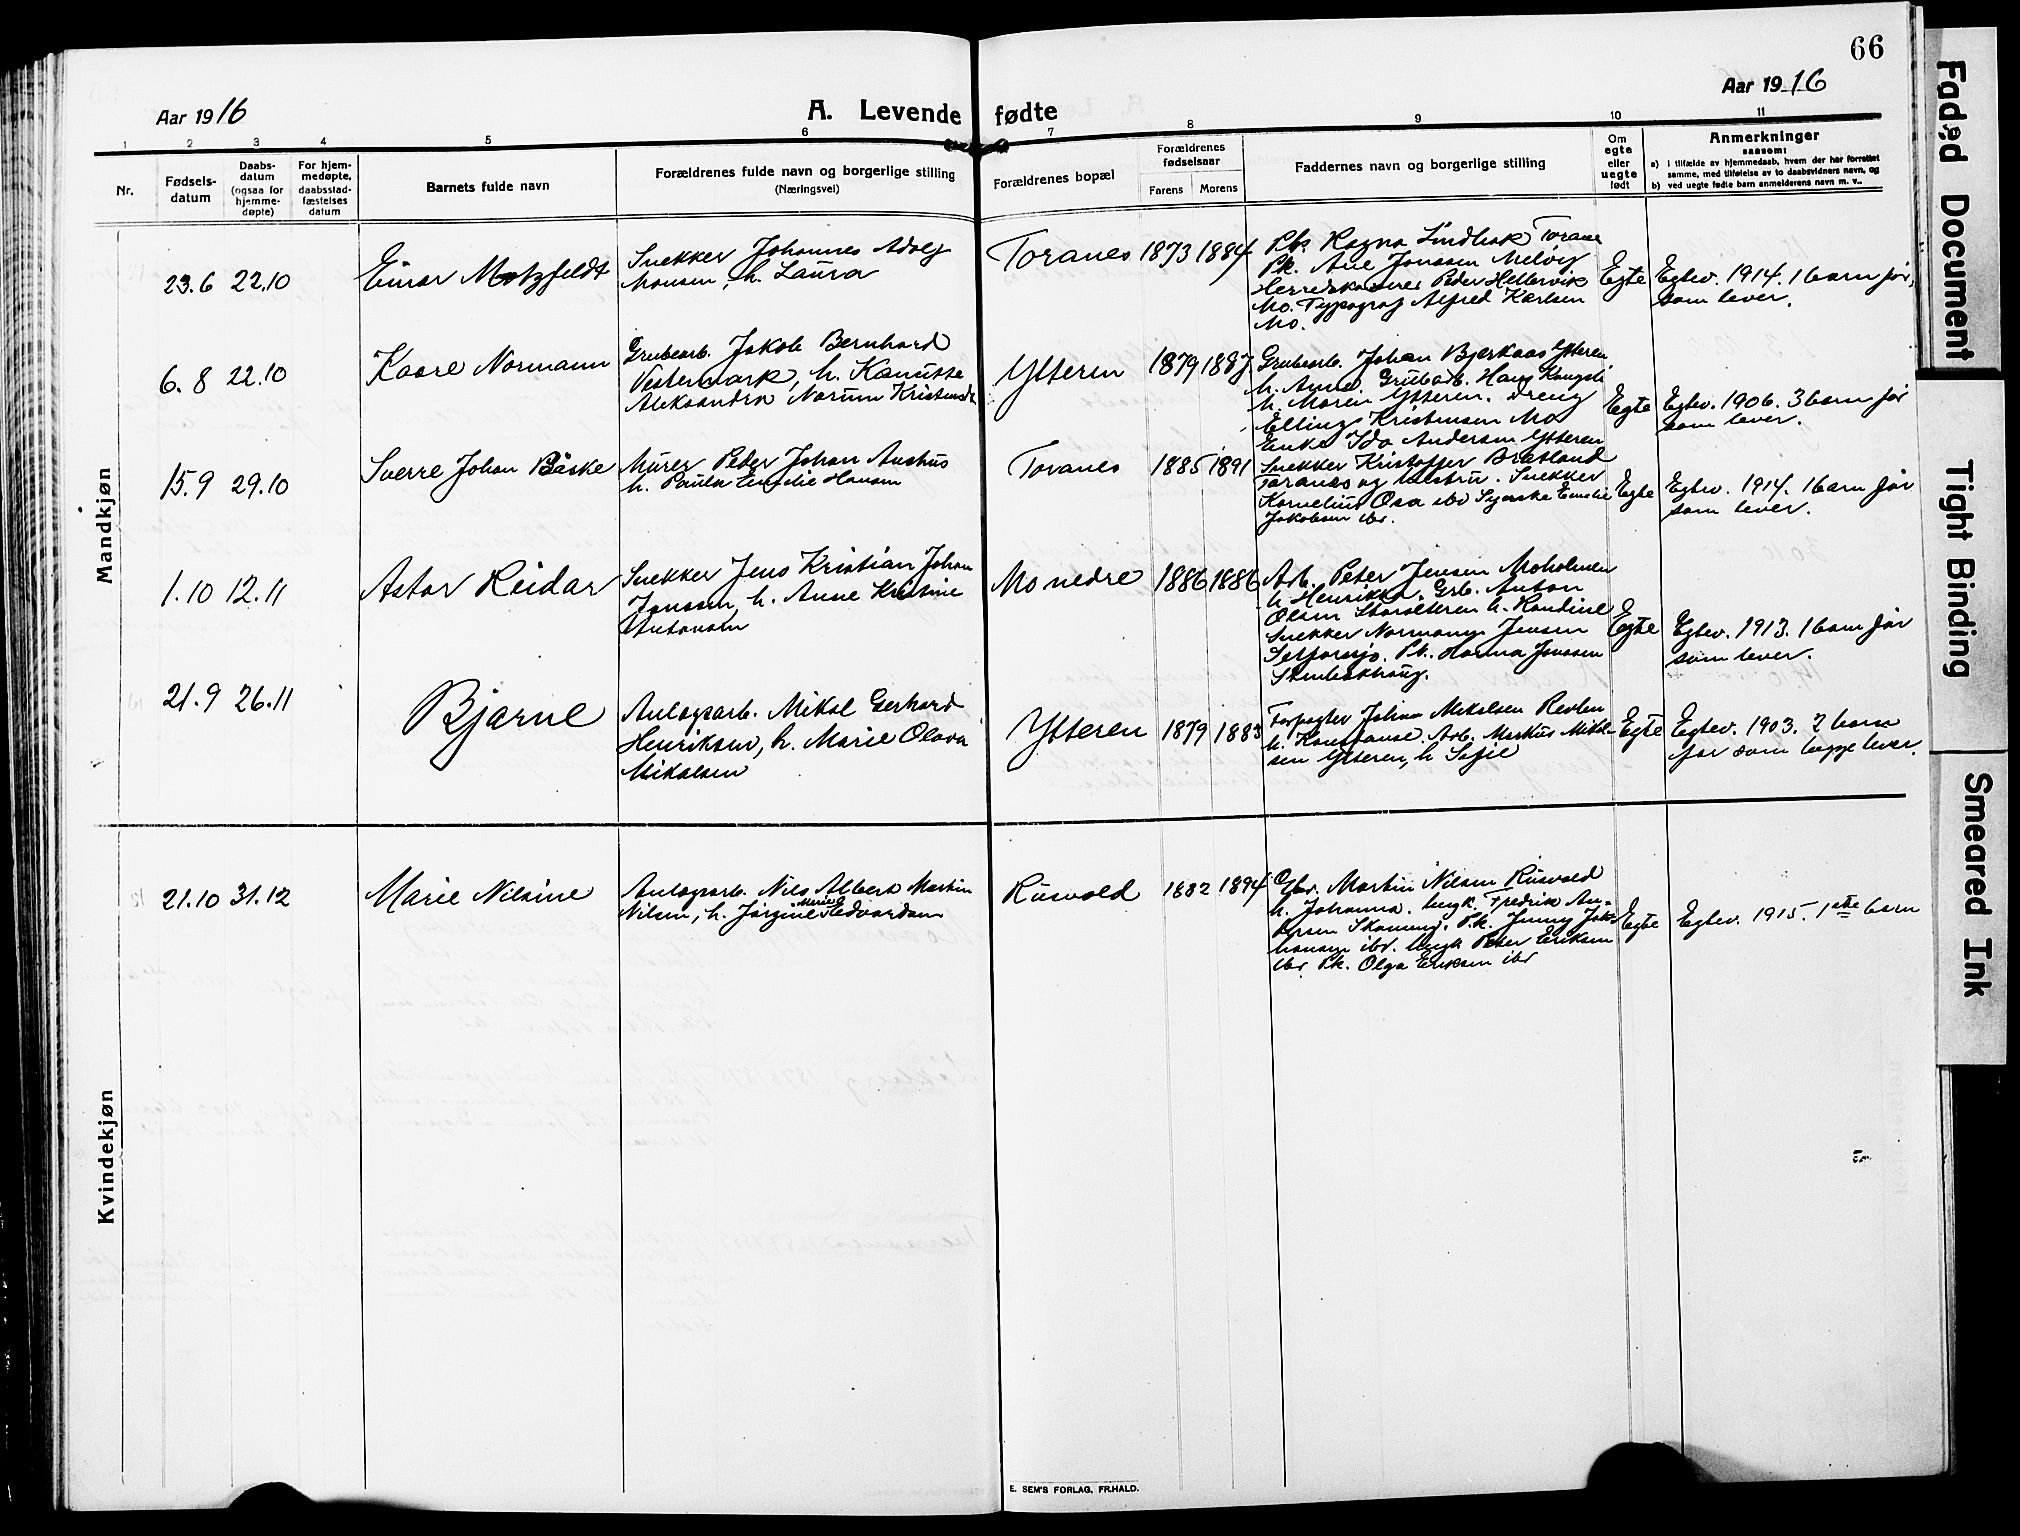 66
Aar 1916
A. Levende fødte
Aar 1916
1 2 3 4 5 6 7 8 9 10 11
Nr.
Fødsels-
datum
Daabs-
datum
(ogsaa for
hjemme-
døpte)
For hjem-
medøpte,
daabsstad-
fæstelses
datum
Barnets fulde navn
Forældrenes fulde navn og borgerlige stilling
(Næringsvei)
Forældrenes bopæl
Forældrenes
fødselsaar
Farens Morens
Faddernes navn og borgerlige stilling
Om
egte
eller
uegte
født
Anmerkninger
saasom:
a) i tilfælde av hjemmedaab, hvem der har forrettet
samme, med tilføielse av to daabsvidners navn, og
b) ved uegte fødte barn anmelderens navn m. v..
Mandkjøn
23.6 22.10
Einar Motzfeldt
Snekker Johannes Adolf
Monsen, h. Laura
Toranes 1873 1884
Pk. Ragna Lindbak Torane
Pk. Ane Jonssen Meløy
Herredskasserer Peder Hellervik
Mo. Typograf Alfred Karlsen
Mo.
Egte
Egtev. 1914. 1 barn før,
som lever.
6.8 22.10
Kaare Normann
Grubearb. Jakob Bernhard
Vestermark, h. Kanutte
Aleksandra Norum Kristensen
Ytteren
1879 1887
Grubearb. Johan Bjerkaas Ytteren
h. Anna. Grubarb. Hans
h. Maren Ytteren. Dreng
Elling Kristensen Mo
Enke Ida Andersen Ytteren
Egte
Egtev. 1906. 3 barn før
som lever.
15.9 29.10
Sverre Johan Baske
Murer Peder Johan Aushus
h. Paula Emilie Hansen
Toranes 1885 1891
Snekker Kristoffer Bratland
Toranes og hustru. Snekker
Kornelius Osa ibd Syerske Emelie
Jakobsen ibd.
Egte
Egtev. 1914. 1 barn før
som lever.
1.10 12.11
Astor Reidar
Snekker Jens Kristian Johan
Jonssen, h. Anne Kristine
Antonsen
Mo nedre 1886 1886
Arb. Peter Jensen Moholmen
h. Henrikka. Grb. Anton
Olsen Storsæteren h. Kondine
Snekker Normann Jensen
Selforsjo. Pk. Hanna Jonssen
Stenbækhaug.
Egte
Egtev. 1913. 1 barn før
som lever.
21.9 26.11
Bjarne
Anlægsarb. Mikal Gerhard
Henriksen, h. Marie Olava
Mikalsen
Ytteren 1879 1883
Forpagter Johan Mikalsen Revlen
h. Konstanse. Arb. Markus Mikal-
sen Ytteren, h Sofie
Egte
Egtev. 1903. 2 barn
før som begge lever.
Kvindekjøn
21.10 31.12
Marie Nilsine
Anlægsarb. Nils Albert Martin
Nilsen, h. Jørgine Marie Edvardsen
Rusvold 1882 1894
Gbr. Martin Nilsen Rusvold
h. Johanna. Ungk. Fredrik An-
dersen Skonseng. Pk. Jenny Jo-
hansen ibd. Ungk Peter Eriksen
ibd Pk. Olga Eriksen ibd
Egte
Egtev. 1915. 1ste barn
E. SEM'S FORLAG, FR.HALD.
Faded Document
Tight Binding
Smeared Ink